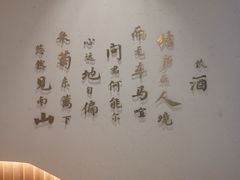 饮酒
结庐在人境
而无车马喧
问君何能尔
心远地自偏
采菊东篱下
悠然见南山